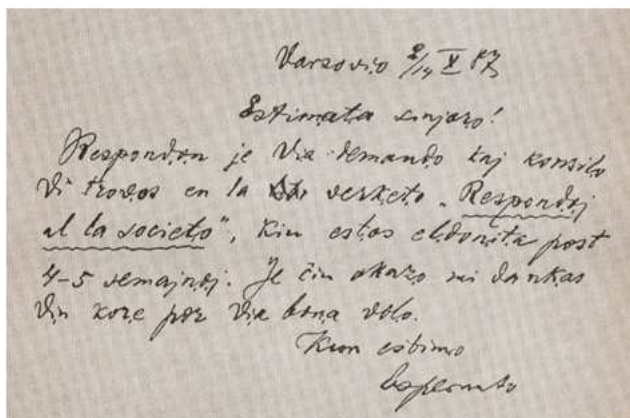 Varsovio 2/14 X 87
Estimata sinjoro!
Respondon je Via demando kaj konsilo
Vi trovos en la verketo „Respondoj
al la societo", kiu estos eldonita post
4-5 semajnoj. Je ĉiu okazo mi dankas
Vin kore por Via bona volo.
Kun estimo
Esperanto